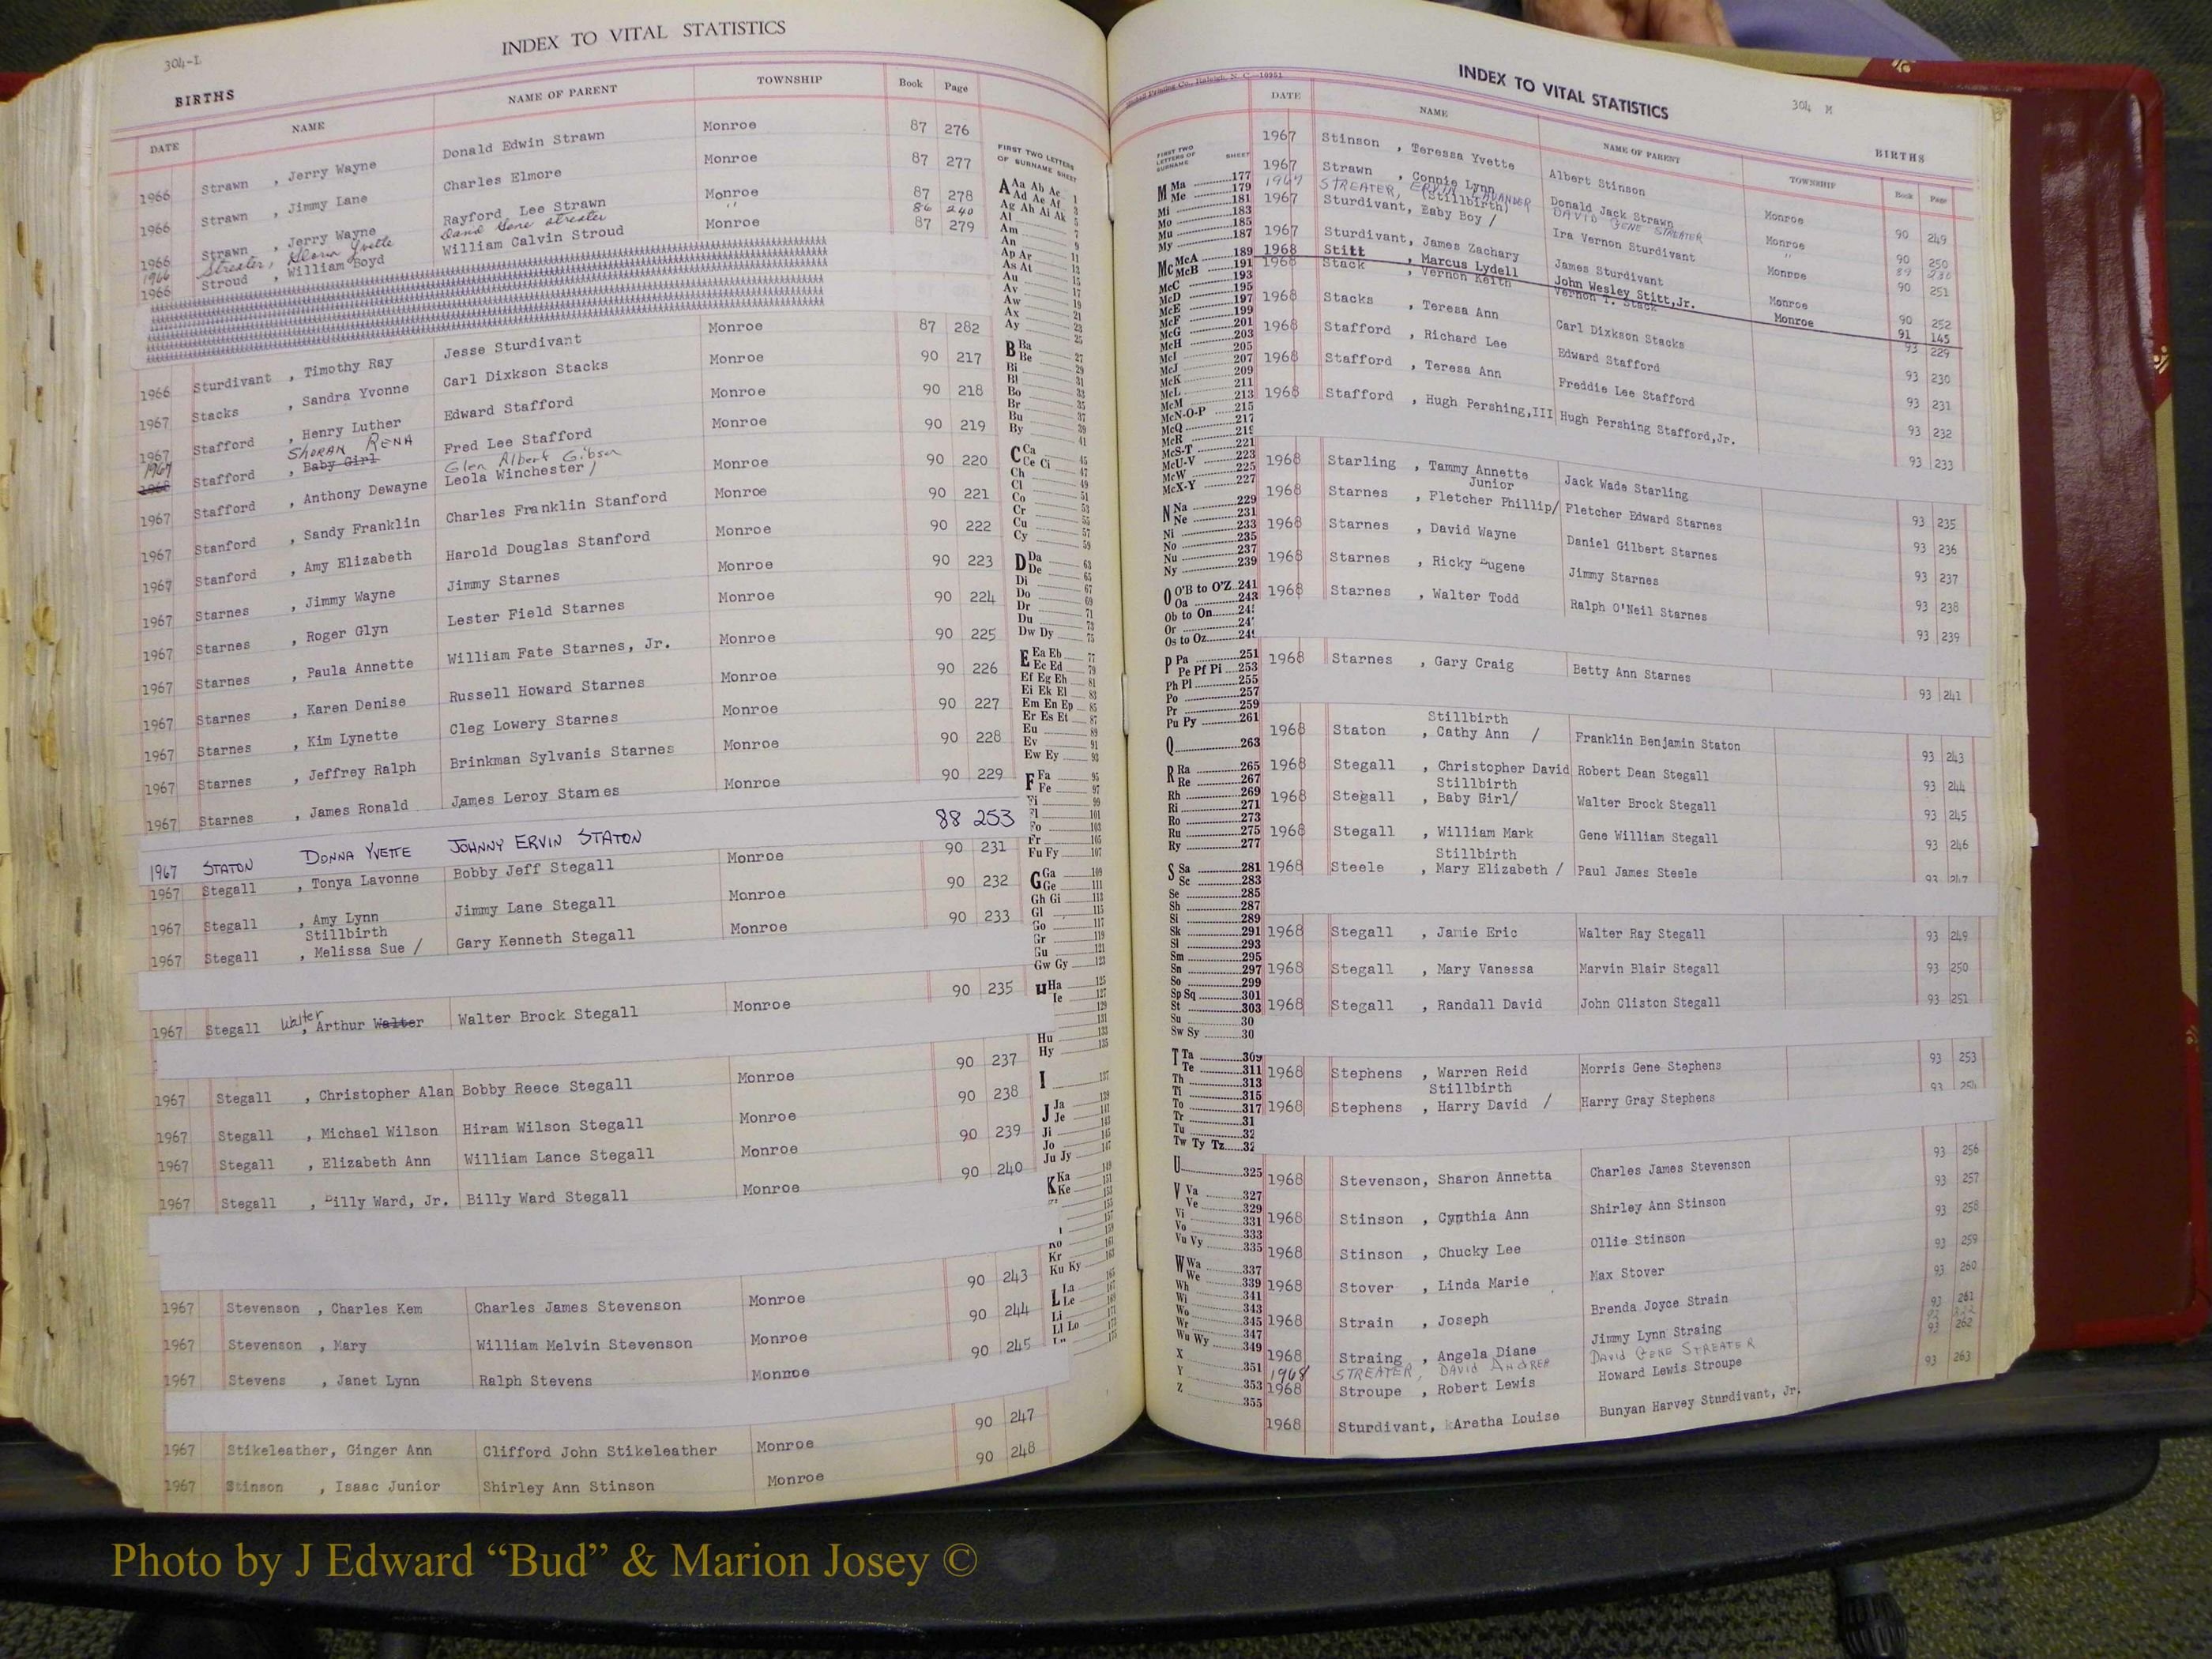 304-L
INDEX TO VITAL STATISTICS
BIRTHS
DATE NAME NAME OF PARENT TOWNSHIP Book Page
1966 Strawn , Jerry Wayne Donald Edwin Strawn Monroe 87 276
1966 Strawn , Jimmy Lane Charles Elmore Monroe 87 277
1966 Strawn , Jerry Wayne Rayford Lee Strawn Monroe 87 278
1966 Streater, Yvette David Gene Streater " 86 240
1966 Stroud , William Boyd William Calvin Stroud Monroe 87 279
1966 Sturdivant , Timothy Ray Jesse Sturdivant Monroe 87 282
1967 Stacks , Sandra Yvonne Carl Dixkson Stacks Monroe 90 217
1967 Stafford , Henry Luther Edward Stafford Monroe 90 218
SHERAN RENA
1967 Stafford , Baby Girl Fred Lee Stafford Monroe 90 219
Glen Albert Gibson
1967 Stafford , Anthony Dewayne Leola Winchester / Monroe 90 220
1967 Stanford , Sandy Franklin Charles Franklin Stanford Monroe 90 221
1967 Stanford , Amy Elizabeth Harold Douglas Stanford Monroe 90 222
1967 Starnes , Jimmy Wayne Jimmy Starnes Monroe 90 223
1967 Starnes , Roger Glyn Lester Field Starnes Monroe 90 224
1967 Starnes , Paula Annette William Fate Starnes, Jr. Monroe 90 225
1967 Starnes , Karen Denise Russell Howard Starnes Monroe 90 226
1967 Starnes , Kim Lynette Cleg Lowery Starnes Monroe 90 227
1967 Starnes , Jeffrey Ralph Brinkman Sylvanis Starnes Monroe 90 228
1967 Starnes , James Ronald James Leroy Starnes Monroe 90 229
1967 STATON DONNA YVETTE JOHNNY ERVIN STATON 88 253
1967 Stegall , Tonya Lavonne Bobby Jeff Stegall Monroe 90 231
1967 Stegall , Amy Lynn Jimmy Lane Stegall Monroe 90 232
Stillbirth
1967 Stegall , Melissa Sue / Gary Kenneth Stegall Monroe 90 233
1967 Stegall Walter , Arthur Walter Walter Brock Stegall Monroe 90 235
1967 Stegall , Christopher Alan Bobby Reece Stegall Monroe 90 237
1967 Stegall , Michael Wilson Hiram Wilson Stegall Monroe 90 238
1967 Stegall , Elizabeth Ann William Lance Stegall Monroe 90 239
1967 Stegall , Billy Ward, Jr. Billy Ward Stegall Monroe 90 240
1967 Stevenson , Charles Kem Charles James Stevenson Monroe 90 243
1967 Stevenson , Mary William Melvin Stevenson Monroe 90 244
1967 Stevens , Janet Lynn Ralph Stevens Monroe 90 245
1967 Stikeleather, Ginger Ann Clifford John Stikeleather Monroe 90 247
1967 Stinson , Isaac Junior Shirley Ann Stinson Monroe 90 248
FIRST TWO LETTERS
OF SURNAME SHEET
A Aa Ab Ac 1
Ad Ae Af 3
Ag Ah Ai Ak 5
Al 7
Am 9
An 11
Ap Ar 13
As At 15
Au 17
Av 19
Aw 21
Ax 23
Ay 25
B Ba 27
Be 29
Bi 31
Bl 33
Bo 35
Br 37
Bu 39
By 41
C Ca 45
Ce Ci
Ch 47
Cl 49
Co 51
Cr 53
Cu 55
Cy 59
D Da 63
De 65
Di 67
Do 69
Dr 71
Du 73
Dw Dy 75
E Ea Eb 77
Ec Ed 79
Ef Eg Eh 81
Ei Ek El 83
Em En Ep 85
Er Es Et 87
Eu 89
Ev 91
Ew Ey 93
F Fa 95
Fe 97
Fi 99
Fl 101
Fo 103
Fr 105
Fu Fy 107
G Ga 109
Ge 111
Gh Gi 113
Gl 115
Go 117
Gr 119
Gu 121
Gw Gy 123
Ha 125
127
129
131
Hu 133
Hy 135
I 137
J Ja 139
Je 141
Ji 143
Jo 145
Ju Jy 147
K Ka 149
Ke 151
Kr
Ku Ky 163
L La 165
Le 167
Li
Ll Lo
304 M
INDEX TO VITAL STATISTICS
BIRTHS
Printing Co., Raleigh, N. C.—10951
DATE NAME NAME OF PARENT TOWNSHIP Book Page
1967 Stinson , Teressa Yvette Albert Stinson Monroe 90 249
1967 Strawn , Connie Lynn Donald Jack Strawn Monroe 90 250
1967 STREATER, ERVIN LAVANDER DAVID GENE STREATER " 89 230
(Stillbirth)
1967 Sturdivant, Baby Boy / Ira Vernon Sturdivant Monroe 90 251
1967 Sturdivant, James Zachary James Sturdivant Monroe 90 252
1968 Stitt , Marcus Lydell John Wesley Stitt,Jr. Monroe 91 145
1968 Stack , Vernon Keith Vernon T. Stack 93 229
1968 Stacks , Teresa Ann Carl Dixkson Stacks 93 230
1968 Stafford , Richard Lee Edward Stafford 93 231
1968 Stafford , Teresa Ann Freddie Lee Stafford 93 232
1968 Stafford , Hugh Pershing,III Hugh Pershing Stafford,Jr. 93 233
1968 Starling , Tammy Annette Jack Wade Starling 93 235
Junior
1968 Starnes , Fletcher Phillip/ Fletcher Edward Starnes 93 236
1968 Starnes , David Wayne Daniel Gilbert Starnes 93 237
1968 Starnes , Ricky Eugene Jimmy Starnes 93 238
1968 Starnes , Walter Todd Ralph O'Neil Starnes 93 239
1968 Starnes , Gary Craig Betty Ann Starnes 93 241
Stillbirth
1968 Staton , Cathy Ann / Franklin Benjamin Staton 93 243
1968 Stegall , Christopher David Robert Dean Stegall 93 244
Stillbirth
1968 Stegall , Baby Girl/ Walter Brock Stegall 93 245
1968 Stegall , William Mark Gene William Stegall 93 246
Stillbirth
1968 Steele , Mary Elizabeth / Paul James Steele 93 247
1968 Stegall , Jamie Eric Walter Ray Stegall 93 249
1968 Stegall , Mary Vanessa Marvin Blair Stegall 93 250
1968 Stegall , Randall David John Cliston Stegall 93 251
1968 Stephens , Warren Reid Morris Gene Stephens 93 253
Stillbirth
1968 Stephens , Harry David / Harry Gray Stephens 93 254
1968 Stevenson, Sharon Annetta Charles James Stevenson 93 256
1968 Stinson , Cynthia Ann Shirley Ann Stinson 93 257
1968 Stinson , Chucky Lee Ollie Stinson 93 258
1968 Stover , Linda Marie Max Stover 93 259
1968 Strain , Joseph Brenda Joyce Strain 93 260
1968 Straing , Angela Diane Jimmy Lynn Straing 93 261
1968 STREATER, DAVID ANDREA DAVID GENE STREATER
1968 Stroupe , Robert Lewis Howard Lewis Stroupe 93 262
1968 Sturdivant, Aretha Louise Bunyan Harvey Sturdivant, Jr. 93 263
FIRST TWO
LETTERS OF
SURNAME SHEET
M Ma 177
Me 179
Mi 181
Mo 183
Mu 185
My 187
Mc McA 189
McB 191
McC 193
McD 195
McE 197
McF 199
McG 201
McH 203
McI 205
McJ 207
McK 209
McL 211
McM 213
McN-O-P 215
McQ 217
McR 219
McS-T 221
McU-V 223
McW 225
McX-Y 227
N Na 229
Ne 231
Ni 233
No 235
Nu 237
Ny 239
O O'B to O'Z 241
Oa 243
Ob to On
Or
Os to Oz
P Pa 251
Pe Pf Pi 253
Ph Pl 255
Po 257
Pr 259
Pu Py 261
Q 263
R Ra 265
Re 267
Rh 269
Ri 271
Ro 273
Ru 275
Ry 277
S Sa 281
Sc 283
Se 285
Sh 287
Si 289
Sk 291
Sl 293
Sm 295
Sn 297
So 299
Sp Sq 301
St 303
Su 30
Sw Sy 30
T Ta 309
Te 311
Th 313
Ti 315
To 317
Tr 31
Tu 32
Tw Ty Tz 32
U 325
V Va 327
Ve 329
Vi 331
Vo 333
Vu Vy 335
W Wa 337
We 339
Wh 341
Wi 343
Wo 345
Wr 347
Wu Wy 349
X 351
Y 353
Z 355
Photo by J Edward “Bud” & Marion Josey ©